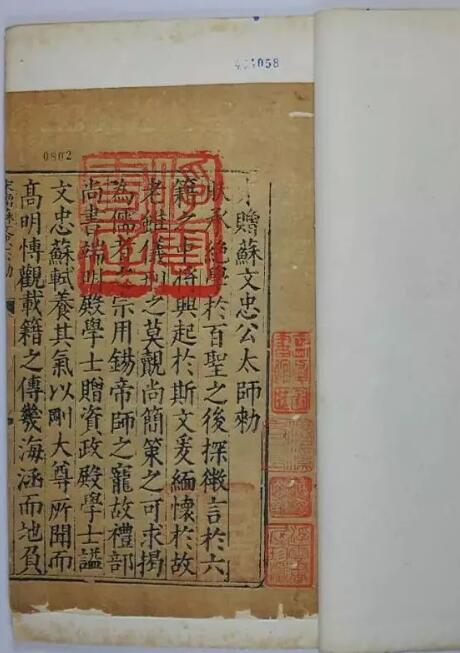 0802
贈蘇文忠公太師勑
朕承絕學於百聖之後探微言於六
籍之中將興起於斯文爰緬懷於故
老雖儀刑之莫覿尚簡策之可求揭
為儒者之宗用錫帝師之寵故禮部
尚書端明殿學士贈資政殿學士謚
文忠蘇軾養其氣以剛大尊所聞而
高明博觀載籍之傳幾海涵而地負